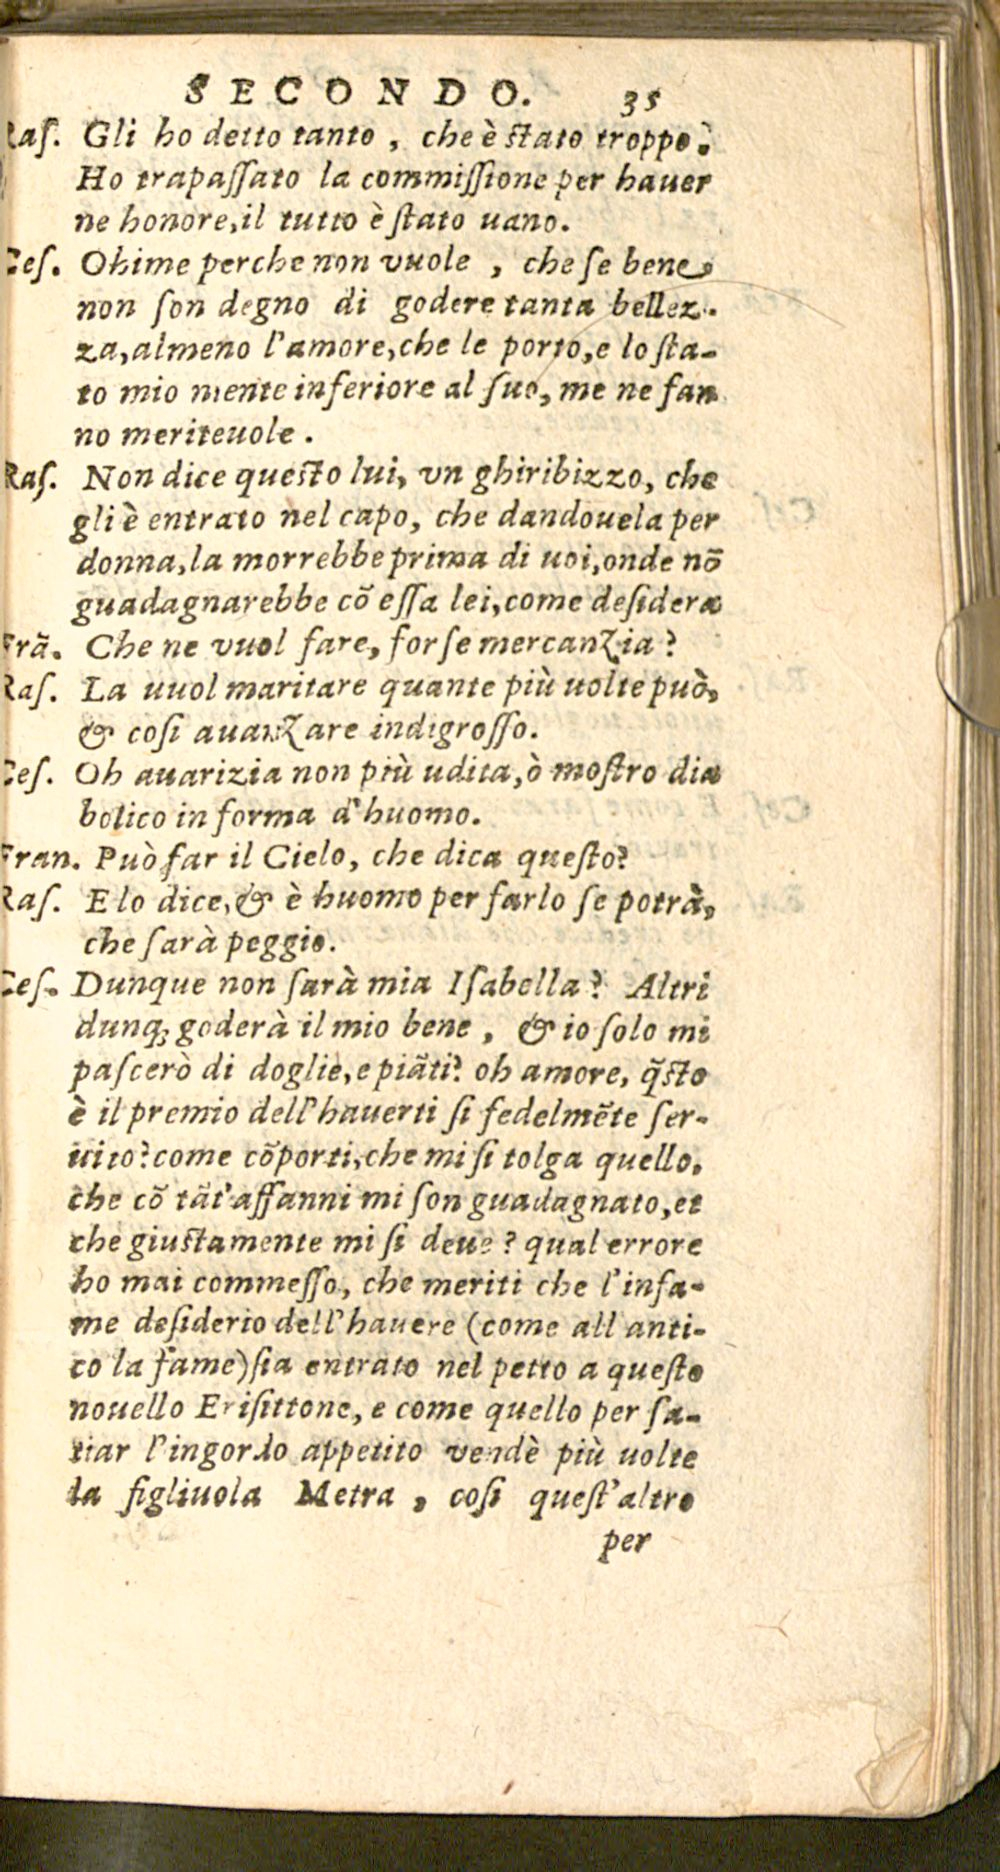 SECONDO. 35
Ras. Gli ho detto tanto, che è stato troppo:
Ho trapassato la commissione per hauer
ne honore, il tutto è stato uano.
Ces. Ohime perche non vuole, che se bene
non son degno di godere tanta bellez-
za, almeno l'amore, che le porto, e lo sta-
to mio niente inferiore al suo, me ne fan
no meriteuole.
Ras. Non dice questo lui, vn ghiribizzo, che
gli è entrato nel capo, che dandouela per
donna, la morrebbe prima di uoi, onde nō
guadagnarebbe cō essa lei, come desidera
Frā. Che ne vuol fare, forse mercanzia?
Ras. La uuol maritare quante più uolte può,
& cosi auanzare indigrosso.
Ces. Oh auarizia non più udita, ò mostro dia
bolico in forma d'huomo.
Fran. Può far il Cielo, che dica questo?
Ras. E lo dice, & è huomo per farlo se potrà,
che sarà peggio.
Ces. Dunque non sarà mia Isabella? Altri
dunq; goderà il mio bene, & io solo mi
pascerò di doglie, e piāti? oh amore, q̃sto
è il premio dell'hauerti si fedelmēte ser-
uito? come cōporti, che mi si tolga quello,
che cō tāt'affanni mi son guadagnato, et
che giustamente mi si deue? qual errore
ho mai commesso, che meriti che l'infa-
me desiderio dell'hauere (come all anti-
co la fame) sia entrato nel petto a questo
nouello Erisittone, e come quello per sa-
tiar l'ingordo appetito vendè più uolte
la figliuola Metra, cosi quest'altro
per